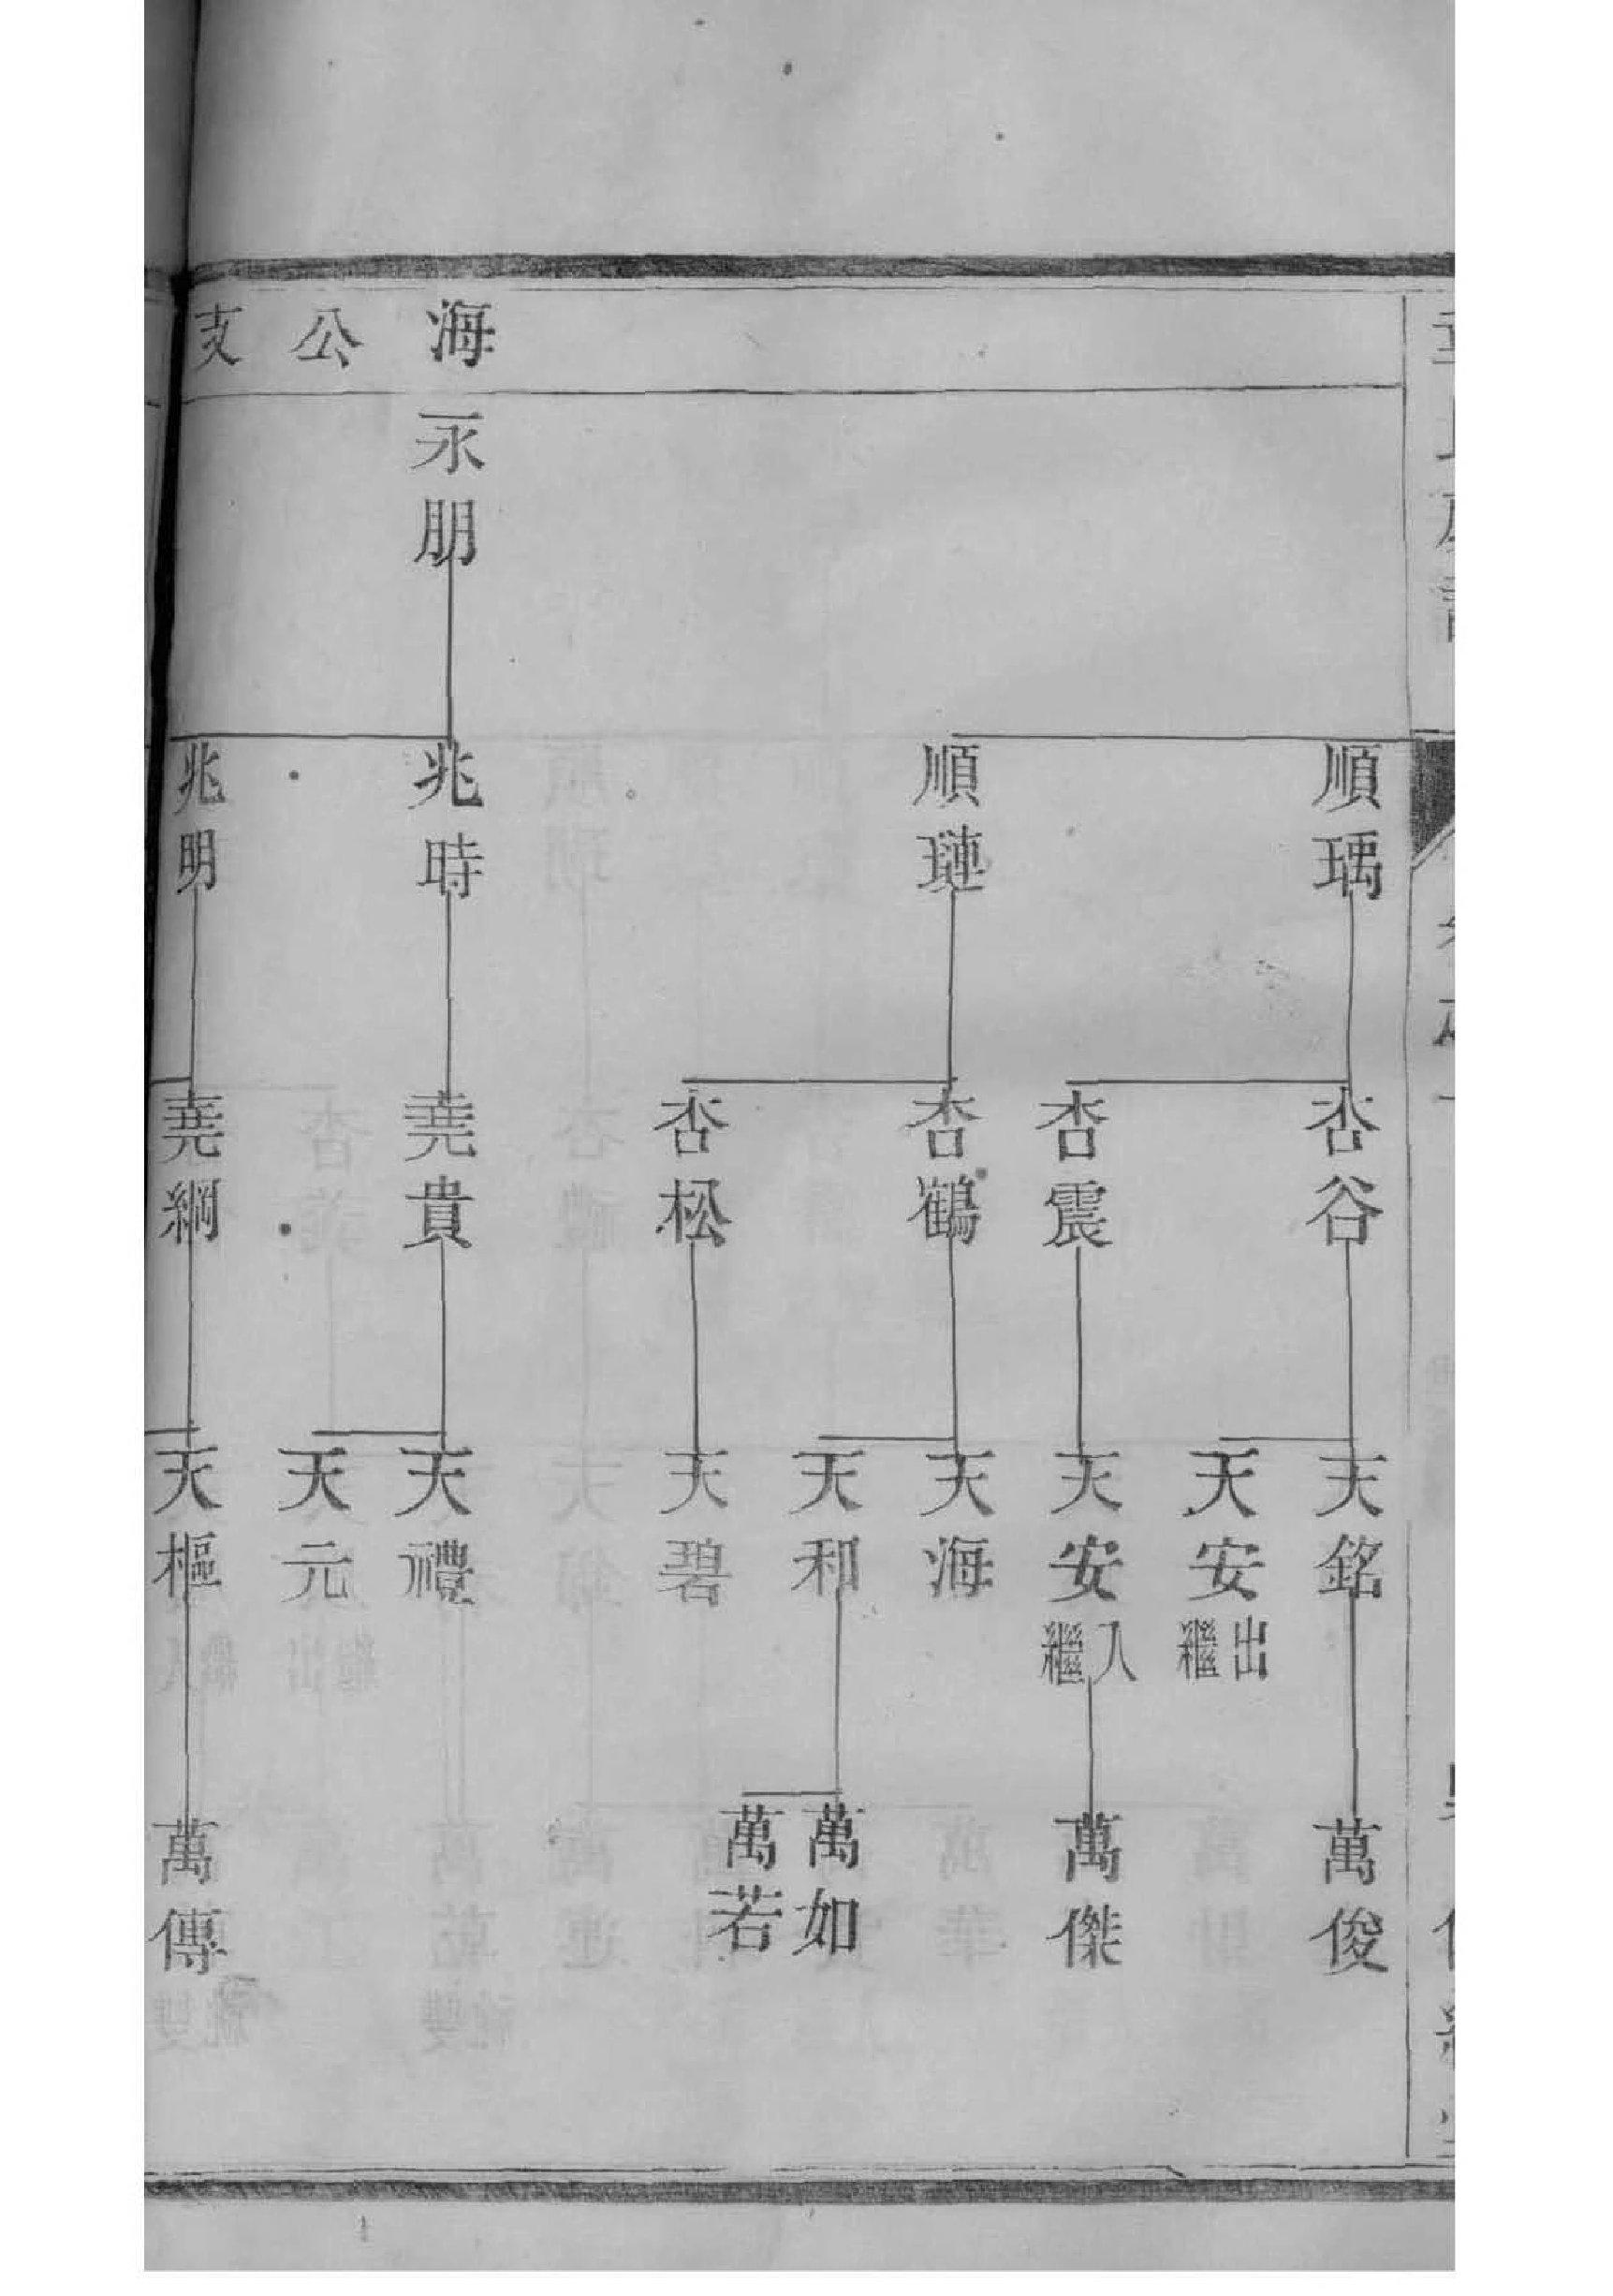 海公支
永朋
順瑀
順璉
兆時
兆明
杏谷
杏震
杏鶴
杏松
堯貴
堯綱
天銘
天安出繼
天安入繼
天海
天和
天碧
天禮
天元
天樞
萬俊
萬傑
萬如
萬若
萬傳